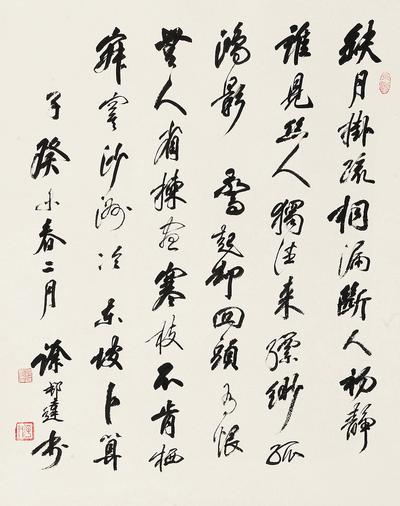 缺月掛疏桐漏斷人初靜
誰見幽人獨往來縹緲孤
鴻影 驚起却回頭有恨
無人省揀盡寒枝不肯栖
寂寞沙洲冷 東坡卜算
子 癸未春二月 徐邦達書